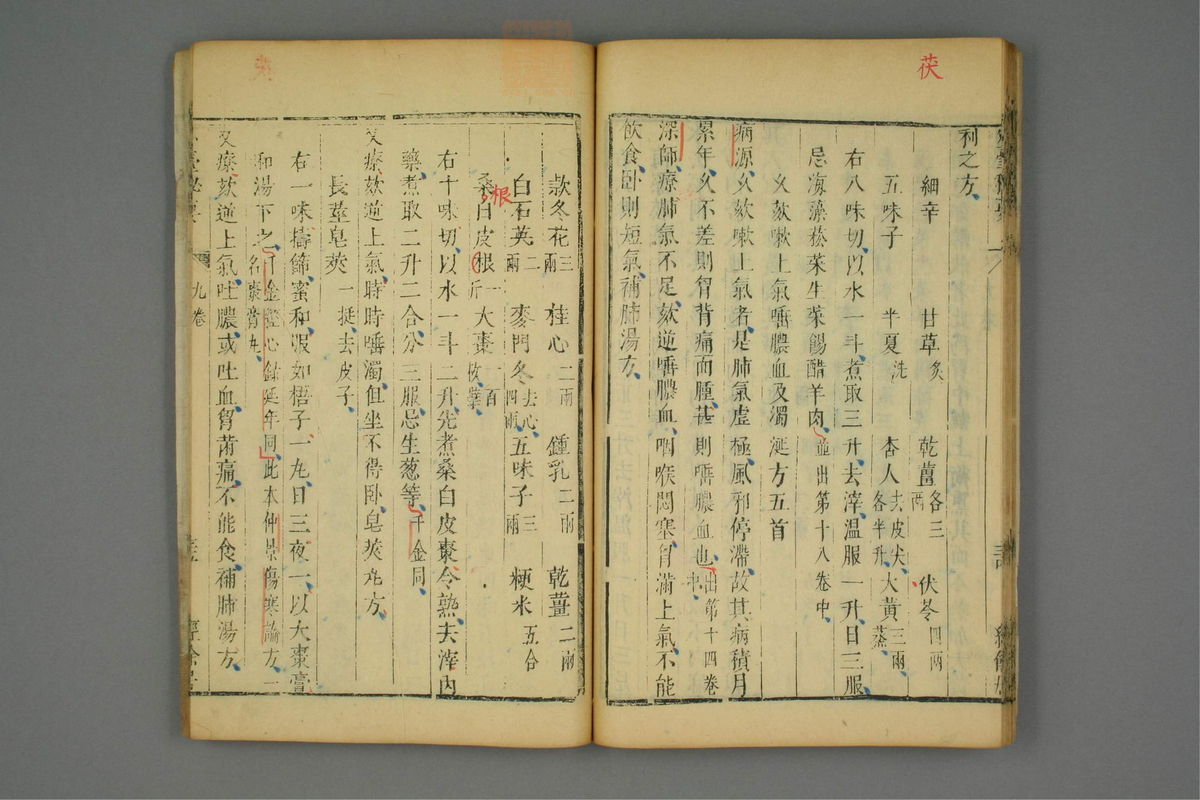 茯
利之方
細辛 甘草炙 乾薑各三兩 伏苓四兩
五味子 半夏洗 杏人去皮尖各半升 大黃三兩蒸
右八味切以水一斗煮取三升去滓溫服一升日三服
忌海藻菘菜生菜餳醋羊肉並出第十八卷中
久欬嗽上氣唾膿血及濁涎方五首
病源久欬嗽上氣者是肺氣虛極風邪停滯故其病積月
累年久不差則胷背痛面腫甚則唾膿血也出第十四卷中
深師療肺氣不足欬逆唾膿血咽喉悶塞胷滿上氣不能
飲食臥則短氣補肺湯方
款冬花三兩 桂心二兩 鍾乳二兩 乾薑二兩
白石英二兩 麥門冬去心四兩 五味子三兩 粳米五合
桑白皮根一斤 大棗一百枚擘
根
右十味切以水一斗二升先煮桑白皮棗令熟去滓內
藥煮取二升二合分三服忌生葱等千金同
又療欬逆上氣時時唾濁但坐不得臥皂莢丸方
長葷皂莢一挺去皮子
右一味擣篩蜜和服如梧子一丸日三夜一以大棗膏
和湯下之千金經心錄延年同此本仲景傷寒論方一名棗膏丸
又療欬逆上氣吐膿或吐血胷萳痛不能食補肺湯方
九卷